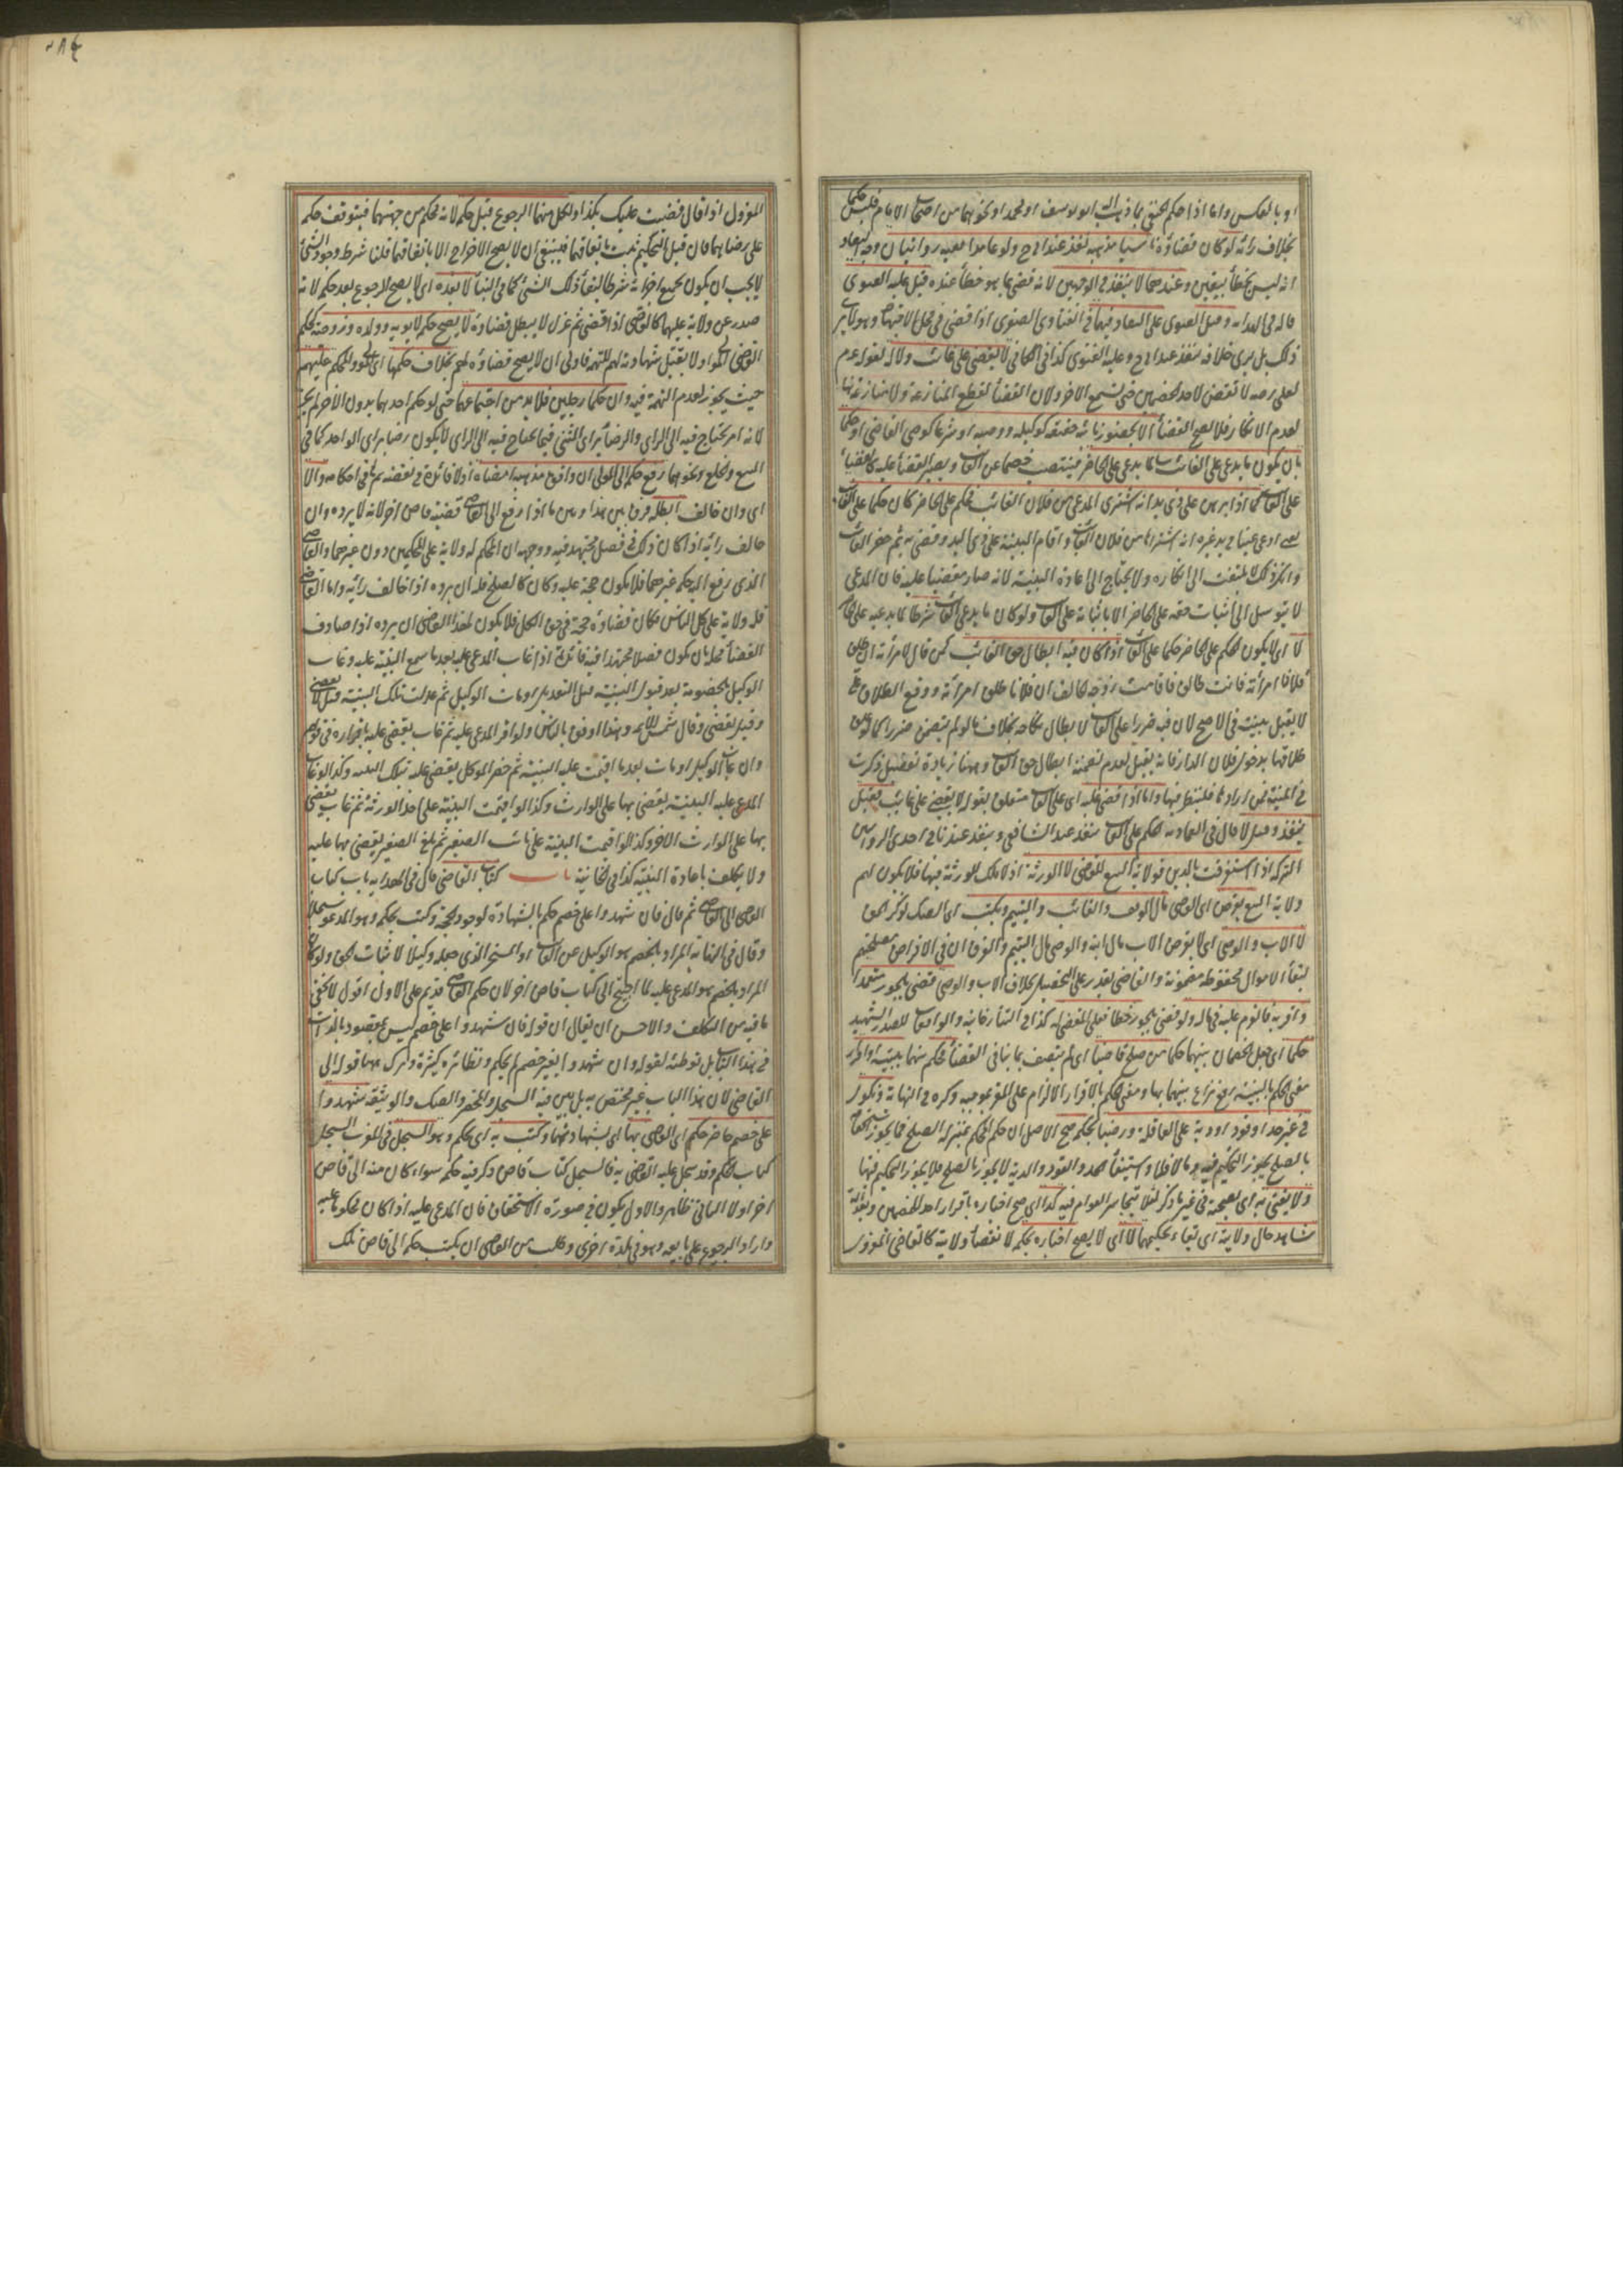 او بالعكس واما اذا حكم الحنفي بما ذهب اليه ابو يوسف او محمد او نحوهما من اصحاب الامام فليس حكما
بخلاف رأيه لو كان قضاؤه ناسيا مذهبه نفذ عند ابى ح ولو عامدا ففيه روايتان وجه النفاذ
انه ليس بخطأ بيقين وعندهما لا ينفذ في الوجهين لانه قضى بما هو خطأ عنده قيل عليه الفتوى
قاله في الهدايه وقيل الفتوى على النفاذ فيهما في الفتاوى الصغرى اذا قضى في محل الاجتهاد وهو لا يرى
ذلك بل يرى خلافه ينفذ عند ابى ح وعليه الفتوى كذا في الكافي لا يقضى على غائب ولا له لقوله عم
لعلى رضه لا تقض لاحد الخصمين حتى تسمع الاخر ولان القضأ لقطع المنازعة ولا منازعة هنا
لعدم الانكار فلا يصح القضأ الا بحضور نائبه حقيقه كوكيله ووصيه او شرعا كوصى القاضي او حكما
بان يكون ما يدعى على الغائب سببا لما يدعى على الحاضر فينتصب خصما عن الغائب ويصير القضأ عليه كالقضأ
على الغائب كما اذا برهن على ذى يد انه اشترى المدعى من فلان الغائب فحكم على الحاضر كان حكما على الغائب
يعنى ادعى عينا في يد غيره انه اشتراها من فلان الغائب واقام البينة على ذى اليد وقضى به ثم حضر الغائب
وانكر ذلك لا يلتفت الى انكاره ولا يحتاج الى اعادة البينة لانه صار مقضيا عليه فان المدعى
لا يتوسل الى اثبات حقه على الحاضر الا باثباته على الغائب ولو كان ما يدعى على الغائب شرطا لما يدعيه على الحاضر
لا اى لا يكون الحكم على الحاضر حكما على الغائب اذا كان فيه ابطال حق الغائب كمن قال لامرأته ان طلق
فلان امرأته فانت طالق فاقامت زوجة الحالف ان فلانا طلق امرأته ووقع الطلاق على
لا يقبل بينته في الاصح لان فيه ضررا على الغائب لابطال نكاحه بخلاف ما لو لم يتضمن ضررا كما لو علق
طلاقها بدخول فلان الدار فانه يقبل لعدم تضمنه ابطال حق الغائب وههنا زيادة تفصيل ذكرت
في المنية فمن ارادها فلينظر فيها واما اذا قضى عليه اى على الغائب متعلق بقوله لا يقضى على غائب فقيل
ينفذ وقيل لا قال في العماديه الحكم على الغائب ينفذ عند الشافعي وينفذ عندنا في احدى الروايتين
التركه اذا استغرقت بالدين فولاية البيع للقاضي لا للورثة اذ لا ملك للورثة فيها فلا يكون لهم
ولاية البيع يقرض اى القاضي مال الوقف والغائب واليتيم ويكتب اى الصك لذكر الحق
لا الاب والوصى اى لا يقرض الاب مال ابنه والوصى مال اليتيم والفرق ان في الاقراض مصلحتهم
لبقأ الاموال محفوظة مضمونة والقاضي يقدر على التحصيل بخلاف الاب والوصى قضى بالجور متعمدا
واقر به فالغرم عليه في ماله ولو قضى بالجور خطأ فعلى المقضى له كذا في التتارخانيه والواقعات للصدر الشهيد
حكما اى جعل الخصمان بينهما حكما من صلح قاضيا اى لم يتصف بما ينافى القضأ فحكم بينهما ببينة واقرار
معنى الحكم بالبينة رفع نزاع بينهما بها ومعنى الحكم بالاقرار الالزام على المقر بموجبه ذكره في النهاية ونكول
في غير حد او قود او دية على العاقلة ورضيا بحكمه صح الاصل ان حكم المحكم بمنزلة الصلح فما يجوز استحقاقه
بالصلح يجوز التحكيم فيه وما لا فلا واستيفأ الحد والقود والدية لا يجوز بالصلح فلا يجوز التحكيم فيها
ولا يفتى به اى بصحته في غير ما ذكر لئلا يتجاسر العوام فيه كذا في صح اخباره باقرار احد الخصمين وبعدالة
شاهد حال ولايته اى بقاء تحكيمهما لا اى لا يصح اخباره بحكمه لانقضأ ولايته كالقاضي المعزول
المعزول اذا قال قضيت عليك بكذا ولكل منهما الرجوع قبل حكمه لانه محكم من جهتهما فيتوقف حكمه
على رضاهما فان قيل التحكيم ثبت باتفاقهما فينبغي ان لا يصح الاخراج الا باتفاقهما قلنا شرط وجود الشئ
لا يجب ان يكون بجميع اجزائه شرطا لبقأ ذلك الشئ كما في البنأ لا بعده اى لا يصح الرجوع بعد حكمه لانه
صدر عن ولاية عليهما كالقاضي اذا قضى ثم عزل لا يبطل قضاؤه لا يصح حكمه لابويه وولده وزوجته كحكم
القاضي لهؤلاء ولا يقبل شهادته لهم للتهمة فاولى ان لا يصح قضاؤه لهم بخلاف حكمهما اى المولى والمحكم عليهم
حيث يجوز لعدم التهمة فيه وان حكما رجلين فلا بد من اجتماعهما حتى لو حكم احدهما بدون الاخر لم يجز
لانه امر يحتاج فيه الى الراى والرضأ براى المثنى فيما يحتاج فيه الى الراى لا يكون رضا براى الواحد كما في
البيع والخلع ونحوهما رفع حكمه الى المولى ان وافق مذهبه امضاه اذ لا فائدة في نقضه ثم في احكامه والا
اى وان خالف ابطله فرق بين هذا وبين ما اذا رفع الى القاضي قضية قاض اخر لانه لا يرده وان
خالف رأيه اذا كان ذلك في فصل مجتهد فيه ووجهه ان المحكم له ولاية على المحكمين دون غيرهما والقاضي
الذى رفع اليه حكمه غيرهما فلا يكون حجة عليه وكان كالصلح فله ان يرده اذا خالف رأيه واما القاضي
فله ولاية على كل الناس فكان قضاؤه حجة في حق الكل فلا يكون لهذا القاضي ان يرده اذا صادف
القضأ محله بان يكون فصلا مجتهدا فيه فائدة اذا غاب المدعى عليه بعد ما سمع البينة عليه وغاب
الوكيل بالخصومة بعد قبول البينة قبل التعديل او مات الوكيل ثم عدلت تلك البينة قيل لا يقضى
وقيل يقضى وقال شمس الائمه وهذا اوفق بالناس ولو اقر المدعى عليه ثم غاب يقضى عليه باقراره في قولهم
وان غاب الوكيل او مات بعد ما اقيمت عليه البينة ثم حضر الموكل يقضى عليه بتلك البينه وكذا لو غاب
المدعى عليه البينة يقضى بها على الوارث وكذا لو اقيمت البينة على احد الورثة ثم غاب يقضى
بها على الوارث الاخر وكذا لو اقيمت البينة على نائب الصغير ثم بلغ الصغير يقضى بها عليه
ولا يكلف باعادة البينة كذا في الخانية باب كتاب القاضي قال في الهدايه باب كتاب
القاضي الى القاضي ثم قال فان شهدوا على خصم حكم بالشهادة لوجود الحجة وكتب بحكمه وهو المدعو سجلا
وقال في النهايه المراد بالخصم هو الوكيل عن الغائب او المسخر الذى جعله وكيلا لاثبات الحق ولو كان
المراد بالخصم هو المدعى عليه لما احتيج الى كتاب قاض اخر لان حكم القاضي قد تم على الاول اقول لا يخفى
ما فيه من التكلف والاحسن ان يقال ان قوله فان شهدوا على خصم ليس بمقصود بالذات
في هذا الباب بل توطئة لقوله وان شهدوا بغير خصم لم يحكم ونظائره كثيرة وترك ههنا قوله الى
القاضي لان هذا الباب غير مختص به بل بين فيه السجل والمحضر والصك والوثيقة شهدوا
على خصم حاضر حكم اى القاضي بها اى بشهادتهما وكتب به اى بحكمه وهو السجل في المغرب السجل
كتاب الحكم وقد سجل عليه القاضي به فالسجل كتاب قاض ذكر فيه حكمه سواء كان منه الى قاض
اخر او لا الثانى ظاهر والاول يكون في صورة الاستحقاق فان المدعى عليه اذا كان محكوما عليه
واراد الرجوع على بايعه وهو في بلدة اخرى وطلب من القاضي ان يكتب حكمه الى قاض تلك